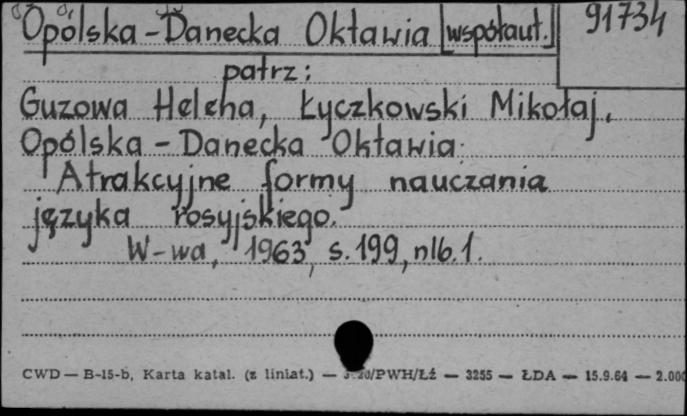 Opólska-Danecka Oktawia [współaut.] 91734
patrz:
Guzowa Helena, Łyczkowski Mikołaj,
Opólska-Danecka Oktawia.
Atrakcyjne formy nauczania
języka rosyjskiego.
W-wa, 1963, s. 199, nlb. 1.
CWD — B-15-b, Karta katal. (z liniat.) — /PWH/Łź — 3255 — ŁDA — 15.9.64 — 2.000